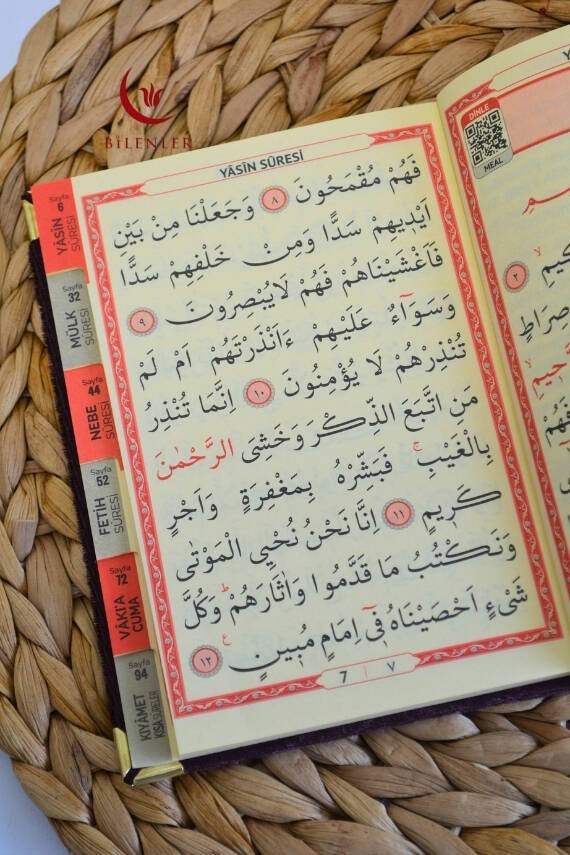 BİLENLER
YÂSÎN SÛRESİ
فَهُمْ مُقْمَحُونَ ٨ وَجَعَلْنَا مِنْ بَيْنِ
اَيْد۪يهِمْ سَدًّا وَمِنْ خَلْفِهِمْ سَدًّا
فَاَغْشَيْنَاهُمْ فَهُمْ لَا يُبْصِرُونَ ٩
وَسَوَٓاءٌ عَلَيْهِمْ ءَاَنْذَرْتَهُمْ اَمْ لَمْ
تُنْذِرْهُمْ لَا يُؤْمِنُونَ ١٠ اِنَّمَا تُنْذِرُ
مَنِ اتَّبَعَ الذِّكْرَ وَخَشِيَ الرَّحْمٰنَ
بِالْغَيْبِۚ فَبَشِّرْهُ بِمَغْفِرَةٍ وَاَجْرٍ
كَر۪يمٍ ١١ اِنَّا نَحْنُ نُحْيِ الْمَوْتٰى
وَنَكْتُبُ مَا قَدَّمُوا وَاٰثَارَهُمْۜ وَكُلَّ
شَيْءٍ اَحْصَيْنَاهُ ف۪ٓي اِمَامٍ مُب۪ينٍ ع ١٢
7 | ٧
Sayfa
6
YÂSÎN
SÛRESİ
Sayfa
32
MÜLK
SÛRESİ
Sayfa
44
NEBE
SÛRESİ
Sayfa
52
FETİH
SÛRESİ
Sayfa
72
VÂKIA
CUMA
Sayfa
94
KIYÂMET
KISA SÛRELER
DİNLE
MEAL
٢